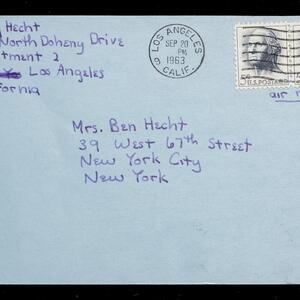 Hecht
North Doheny Drive
tment 2
Los Angeles
fornia
LOS ANGELES
SEP 20
PM
1963
CALIF.
5¢ U.S. POSTAGE
air
Mrs. Ben Hecht
39 West 67th Street
New York City
New York